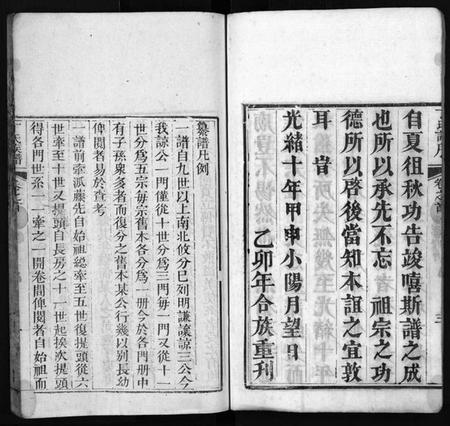 自夏徂秋功告竣嘻斯譜之成
也所以承先不忘 祖宗之功
德所以啓後當知本誼之宜敦
耳 旹
光緒十年甲申小陽月望日
乙卯年合族重刊
纂譜凡例
一譜自九世以上南北攸分已列明謙讓諒三公今
我諒公一門僅從十世分爲三門每一門又從十一
世分爲五宗每宗舊本各分爲一册今於各門册中
有子孫衆多者而復分之舊本某公行幾以別長幼
俾閱者易於查考
一譜前牽派藤先自始祖總牽至五世復提頭從六
世牽至十世又提頭自長房之十一世起挨次提頭
得各門世系一一牽之一開卷間俾閱者自始祖而